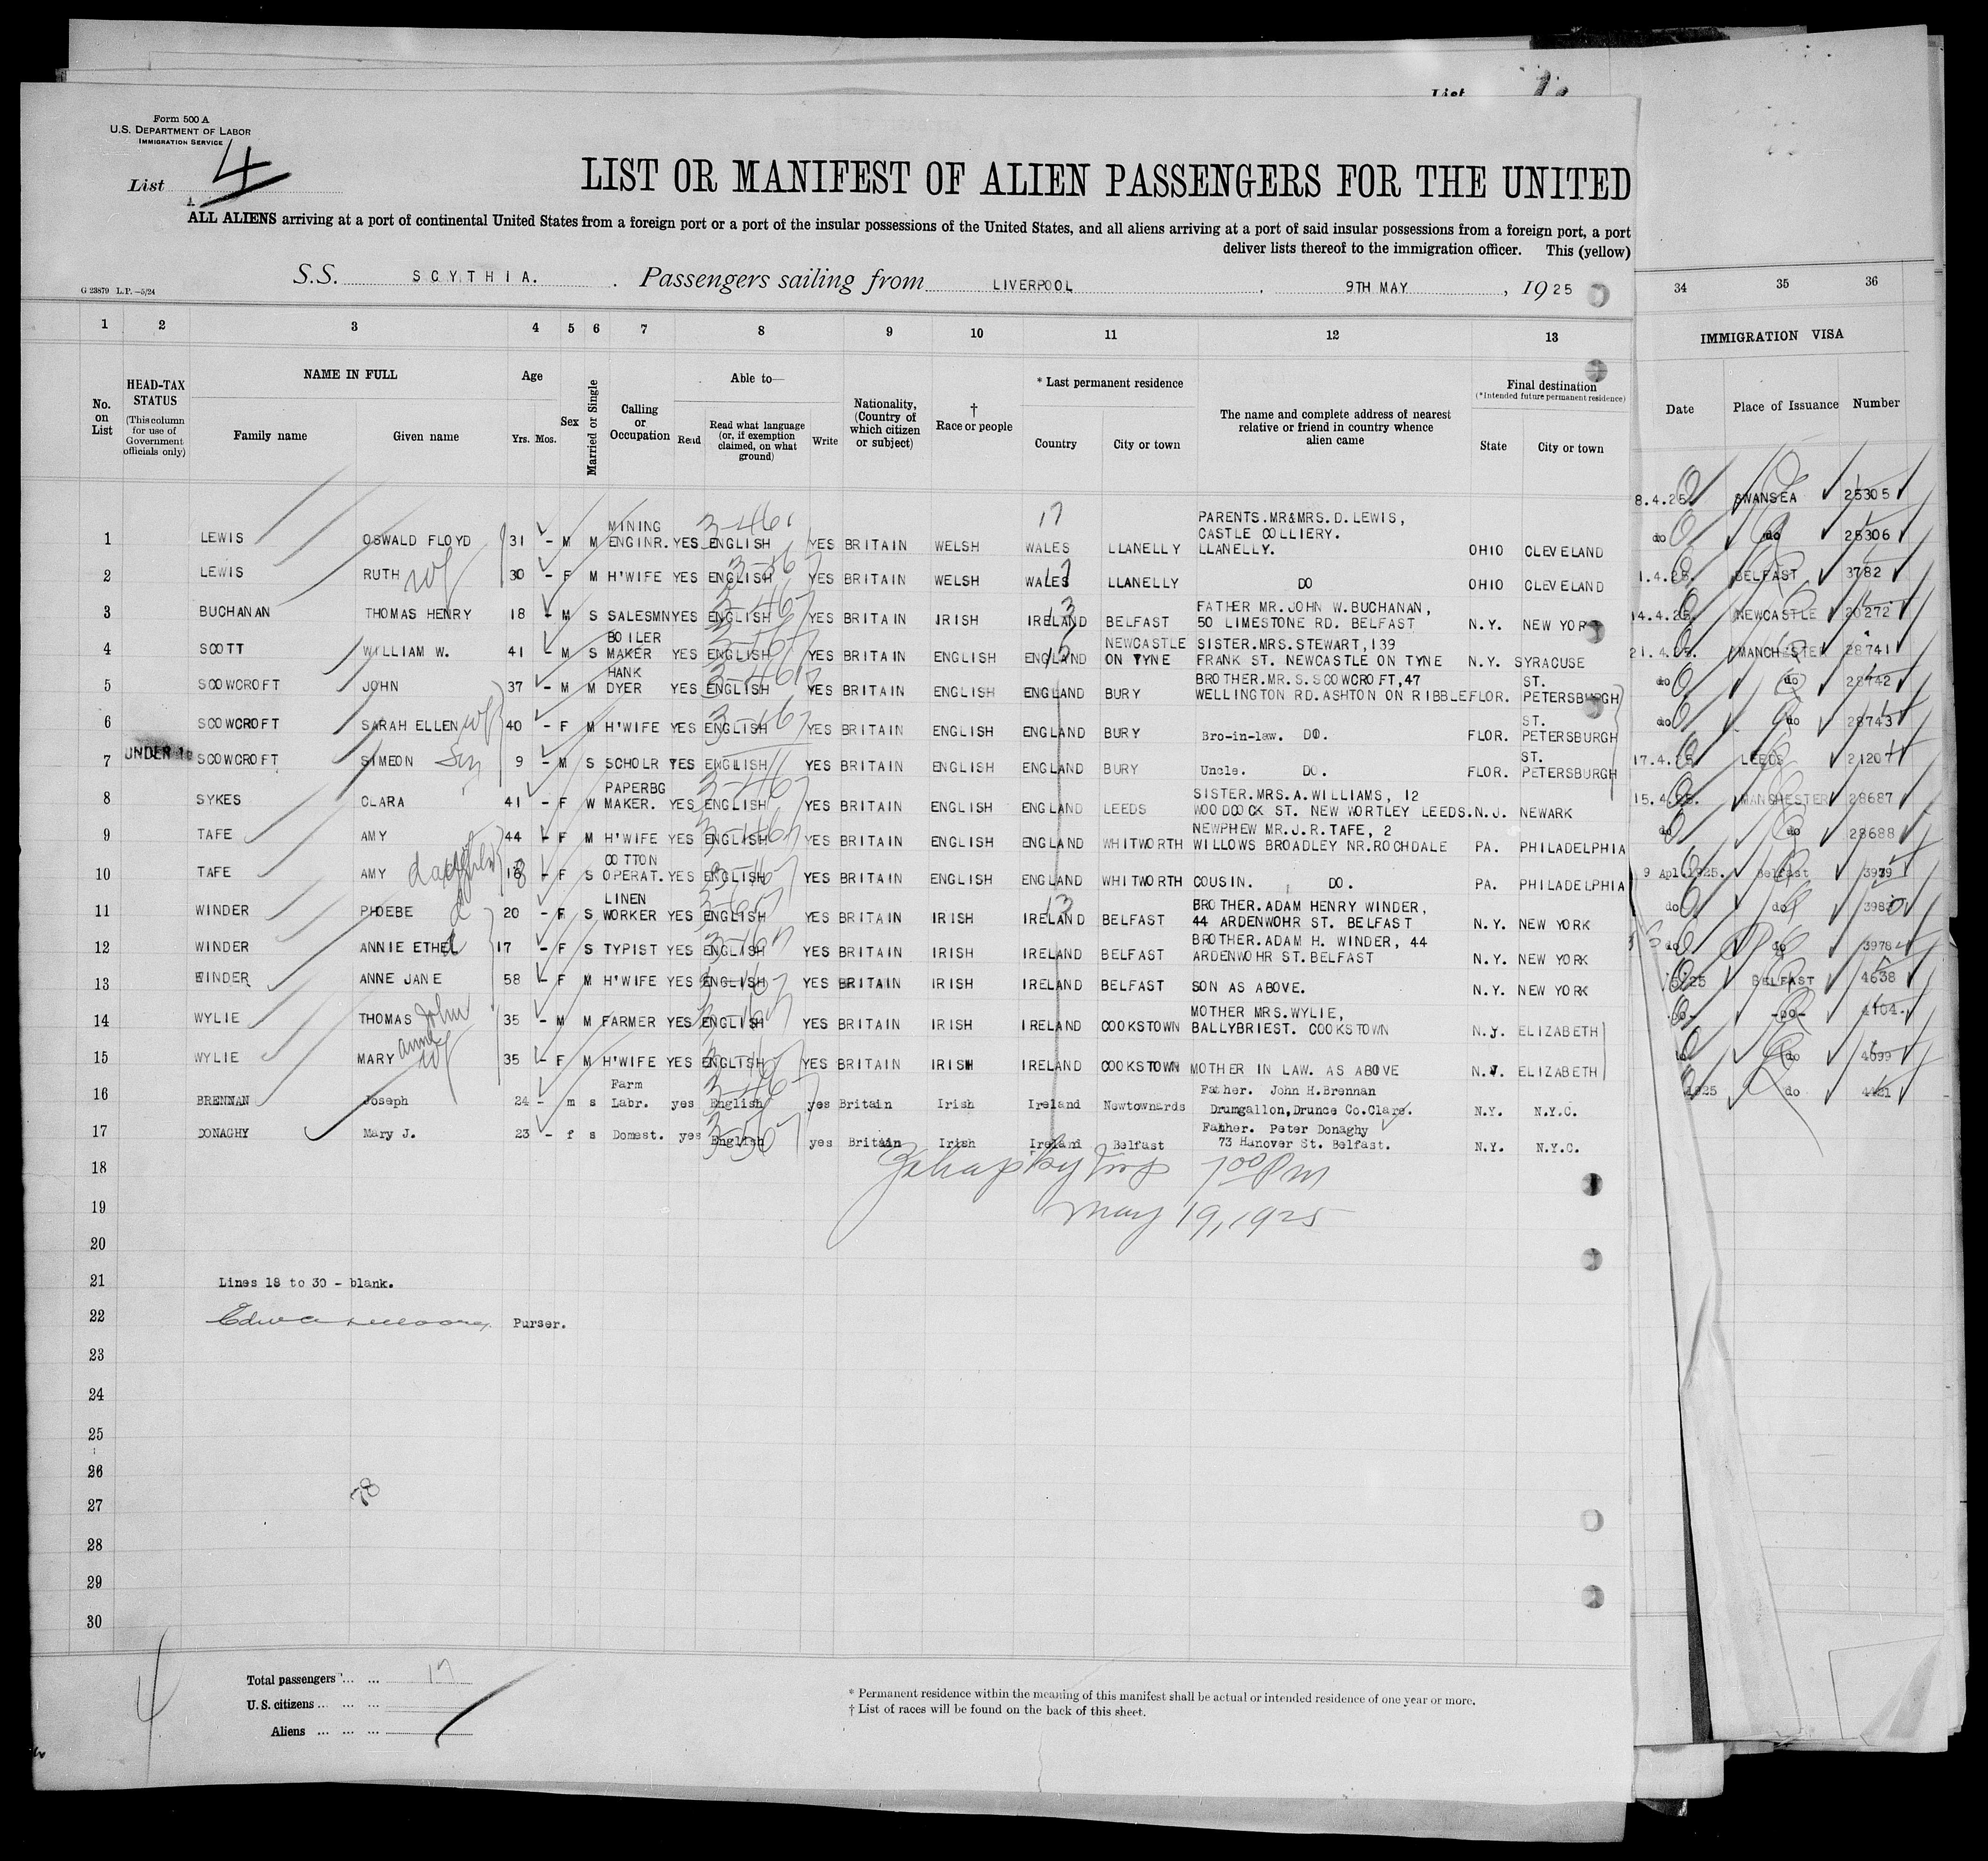 List
Form 500 A
U.S. DEPARTMENT OF LABOR
IMMIGRATION SERVICE
List 4
LIST OR MANIFEST OF ALIEN PASSENGERS FOR THE UNITED
ALL ALIENS arriving at a port of continental United States from a foreign port or a port of the insular possessions of the United States, and all aliens arriving at a port of said insular possessions from a foreign port, a port
deliver lists thereof to the immigration officer. This (yellow)
S.S. SCYTHIA. Passengers sailing from LIVERPOOL, 9TH MAY, 1925
G 23879 L.P.—5/24
1 2 3 4 5 6 7 8 9 10 11 12 13 34 35 36
IMMIGRATION VISA
No. on List
HEAD-TAX STATUS
(This column for use of Government officials only)
NAME IN FULL
Family name Given name
Age
Yrs. Mos.
Sex
Married or Single
Calling or Occupation
Able to—
Read
Read what language (or, if exemption claimed, on what ground)
Write
Nationality, (Country of which citizen or subject)
† Race or people
* Last permanent residence
Country City or town
The name and complete address of nearest relative or friend in country whence alien came
Final destination
(*Intended future permanent residence)
State City or town
Date Place of Issuance Number
1 LEWIS OSWALD FLOYD 31 - M M MINING ENGINR. YES ENGLISH YES BRITAIN WELSH WALES LLANELLY PARENTS.MR&MRS.D.LEWIS, CASTLE COLLIERY. LLANELLY. OHIO CLEVELAND
2 LEWIS RUTH wf 30 - F M H'WIFE YES ENGLISH YES BRITAIN WELSH WALES LLANELLY DO OHIO CLEVELAND
3 BUCHANAN THOMAS HENRY 18 - M S SALESMN YES ENGLISH YES BRITAIN IRISH IRELAND BELFAST FATHER MR.JOHN W.BUCHANAN, 50 LIMESTONE RD. BELFAST N.Y. NEW YORK
4 SCOTT WILLIAM W. 41 - M S BOILER MAKER YES ENGLISH YES BRITAIN ENGLISH ENGLAND NEWCASTLE ON TYNE SISTER.MRS.STEWART,139 FRANK ST. NEWCASTLE ON TYNE N.Y. SYRACUSE
5 SCOWCROFT JOHN 37 - M M HANK DYER YES ENGLISH YES BRITAIN ENGLISH ENGLAND BURY BROTHER.MR.S.SCOWCROFT,47 WELLINGTON RD.ASHTON ON RIBBLE FLOR. ST. PETERSBURGH
6 SCOWCROFT SARAH ELLEN wf 40 - F M H'WIFE YES ENGLISH YES BRITAIN ENGLISH ENGLAND BURY Bro-in-law. DO. FLOR. ST. PETERSBURGH
7 UNDER 16 SCOWCROFT SIMEON Son 9 - M S SCHOLR YES ENGLISH YES BRITAIN ENGLISH ENGLAND BURY Uncle. DO. FLOR. ST. PETERSBURGH
8 SYKES CLARA 41 - F W PAPERBG MAKER. YES ENGLISH YES BRITAIN ENGLISH ENGLAND LEEDS SISTER.MRS.A.WILLIAMS, 12 WOODCOCK ST. NEW WORTLEY LEEDS. N.J. NEWARK
9 TAFE AMY 44 - F M H'WIFE YES ENGLISH YES BRITAIN ENGLISH ENGLAND WHITWORTH NEWPHEW MR.J.R.TAFE, 2 WILLOWS BROADLEY NR.ROCHDALE PA. PHILADELPHIA
10 TAFE AMY daughter 18 - F S COTTON OPERAT. YES ENGLISH YES BRITAIN ENGLISH ENGLAND WHITWORTH COUSIN. DO. PA. PHILADELPHIA
11 WINDER PHOEBE d 20 - F S LINEN WORKER YES ENGLISH YES BRITAIN IRISH IRELAND BELFAST BROTHER.ADAM HENRY WINDER, 44 ARDENWOHR ST. BELFAST N.Y. NEW YORK
12 WINDER ANNIE ETHEL d 17 - F S TYPIST YES ENGLISH YES BRITAIN IRISH IRELAND BELFAST BROTHER.ADAM H. WINDER, 44 ARDENWOHR ST.BELFAST N.Y. NEW YORK
13 WINDER ANNE JANE 58 - F M H'WIFE YES ENGLISH YES BRITAIN IRISH IRELAND BELFAST SON AS ABOVE. N.Y. NEW YORK
14 WYLIE THOMAS John 35 - M M FARMER YES ENGLISH YES BRITAIN IRISH IRELAND COOKSTOWN MOTHER MRS.WYLIE, BALLYBRIEST. COOKSTOWN N.J. ELIZABETH
15 WYLIE MARY anne wf 35 - F M H'WIFE YES ENGLISH YES BRITAIN IRISH IRELAND COOKSTOWN MOTHER IN LAW. AS ABOVE N.J. ELIZABETH
16 BRENNAN Joseph 24 - m s Farm Labr. yes English yes Britain Irish Ireland Newtownards Father. John H.Brennan Drumgallon,Drunce Co.Clare. N.Y. N.Y.C.
17 DONAGHY Mary J. 23 - f s Domest. yes English yes Britain Irish Ireland Belfast Father. Peter Donaghy 73 Hanover St. Belfast. N.Y. N.Y.C.
8.4.25. SWANSEA 25305
do do 25306
1.4.25. BELFAST 3782
14.4.25. NEWCASTLE 20272
21.4.25. MANCHESTER 28741
do do 28742
do do 28743
17.4.25. LEEDS 21207
15.4.25. MANCHESTER 28687
do do 28688
9 Apl.1925. Belfast 3979
do do
do do 3978
BELFAST 4638
-do- -do-
do 4699
1925 do 4421
18
7 00 PM
19
May 19, 1925
20
21 Lines 18 to 30 - blank.
22 Purser.
23
24
25
26
27
28
29
30
78
4
Total passengers ... ... 17
U.S. citizens ... ... ...
Aliens ... ... ...
* Permanent residence within the meaning of this manifest shall be actual or intended residence of one year or more.
† List of races will be found on the back of this sheet.